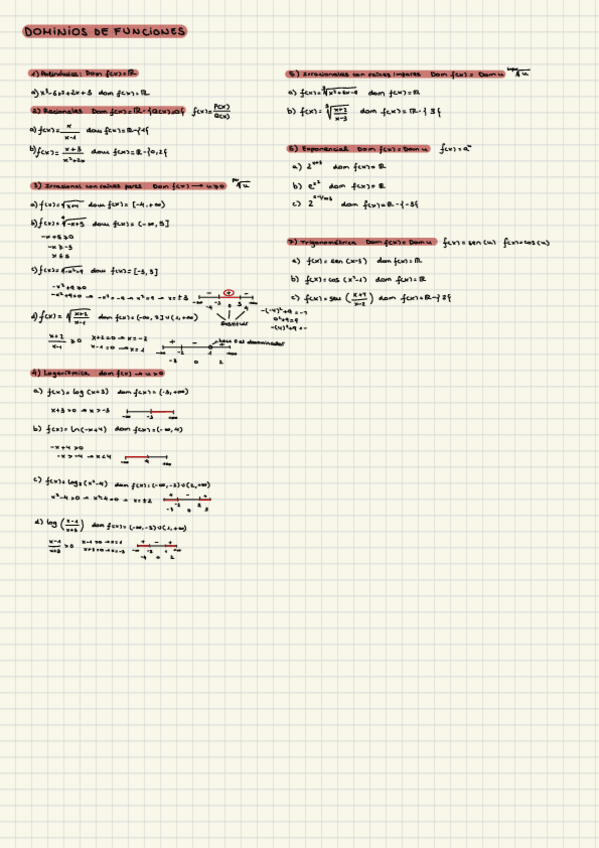 DOMINIOS DE FUNCIONES
1) Polinómicas: Dom f(x)=ℝ
a) x³-6x²+2x+3 dom f(x)=ℝ
2) Racionales Dom f(x)=ℝ-{Q(x)=0} f(x)=P(x)/Q(x)
a) f(x)= x/(x-1) dom f(x)=ℝ-{1}
b) f(x)= (x+3)/(x²+2x) dom f(x)=ℝ-{0,2}
3) Irracional con raíces pares Dom f(x) → u≥0 par√u
a) f(x)=√(x+4) dom f(x)=[-4,+∞)
b) f(x)=⁴√(-x+5) dom f(x)=(-∞,5]
-x+5≥0
-x≥-5
x≤5
c) f(x)=√(-x²+9) dom f(x)=[-3,3]
-x²+9≥0
-x²+9=0 → -x²=-9 → x²=9 → x=±3
-∞ -3 3 +∞
-4 0 4
Sustituir
-(-4)²+9=-7
0²+9=9
-(4)²+9=-
d) f(x)=√((x+2)/(x-1)) dom f(x)=(-∞,-2]∪(1,+∞)
(x+2)/(x-1)≥0 x+2=0 → x=-2
x-1=0 → x=1
hace 0 al denominador
-∞ -2 1 +∞
-3 0 2
4) Logarítmica dom f(x) → u>0
a) f(x)=log(x+3) dom f(x)=(-3,+∞)
x+3>0 → x>-3
-∞ -3 +∞
b) f(x)=ln(-x+4) dom f(x)=(-∞,4)
-x+4>0
-x>-4 → x<4
-∞ 4 +∞
c) f(x)=log₂(x²-4) dom f(x)=(-∞,-2)∪(2,+∞)
x²-4>0 → x²-4=0 → x=±2
d) log((x-1)/(x+3)) dom f(x)=(-∞,-3)∪(1,+∞)
(x-1)/(x+3)>0 x-1=0 → x=1
x+3=0 → x=-3
-∞ -3 1 +∞
-4 0 2
5) Irracionales con raíces impares Dom f(x)=Dom u impar√u
b) f(x)=³√((x+2)/(x-3)) dom f(x)=ℝ-{3}
6) Exponencial Dom f(x)=Dom u f(x)=aᵘ
a) 2ˣ⁺³ dom f(x)=ℝ
b) eˣ² dom f(x)=ℝ
7) Trigonométrica Dom f(x)=Dom u f(x)=sen(u) f(x)=cos(u)
a) f(x)=sen(x-3) dom f(x)=ℝ
b) f(x)=cos(x²-1) dom f(x)=ℝ